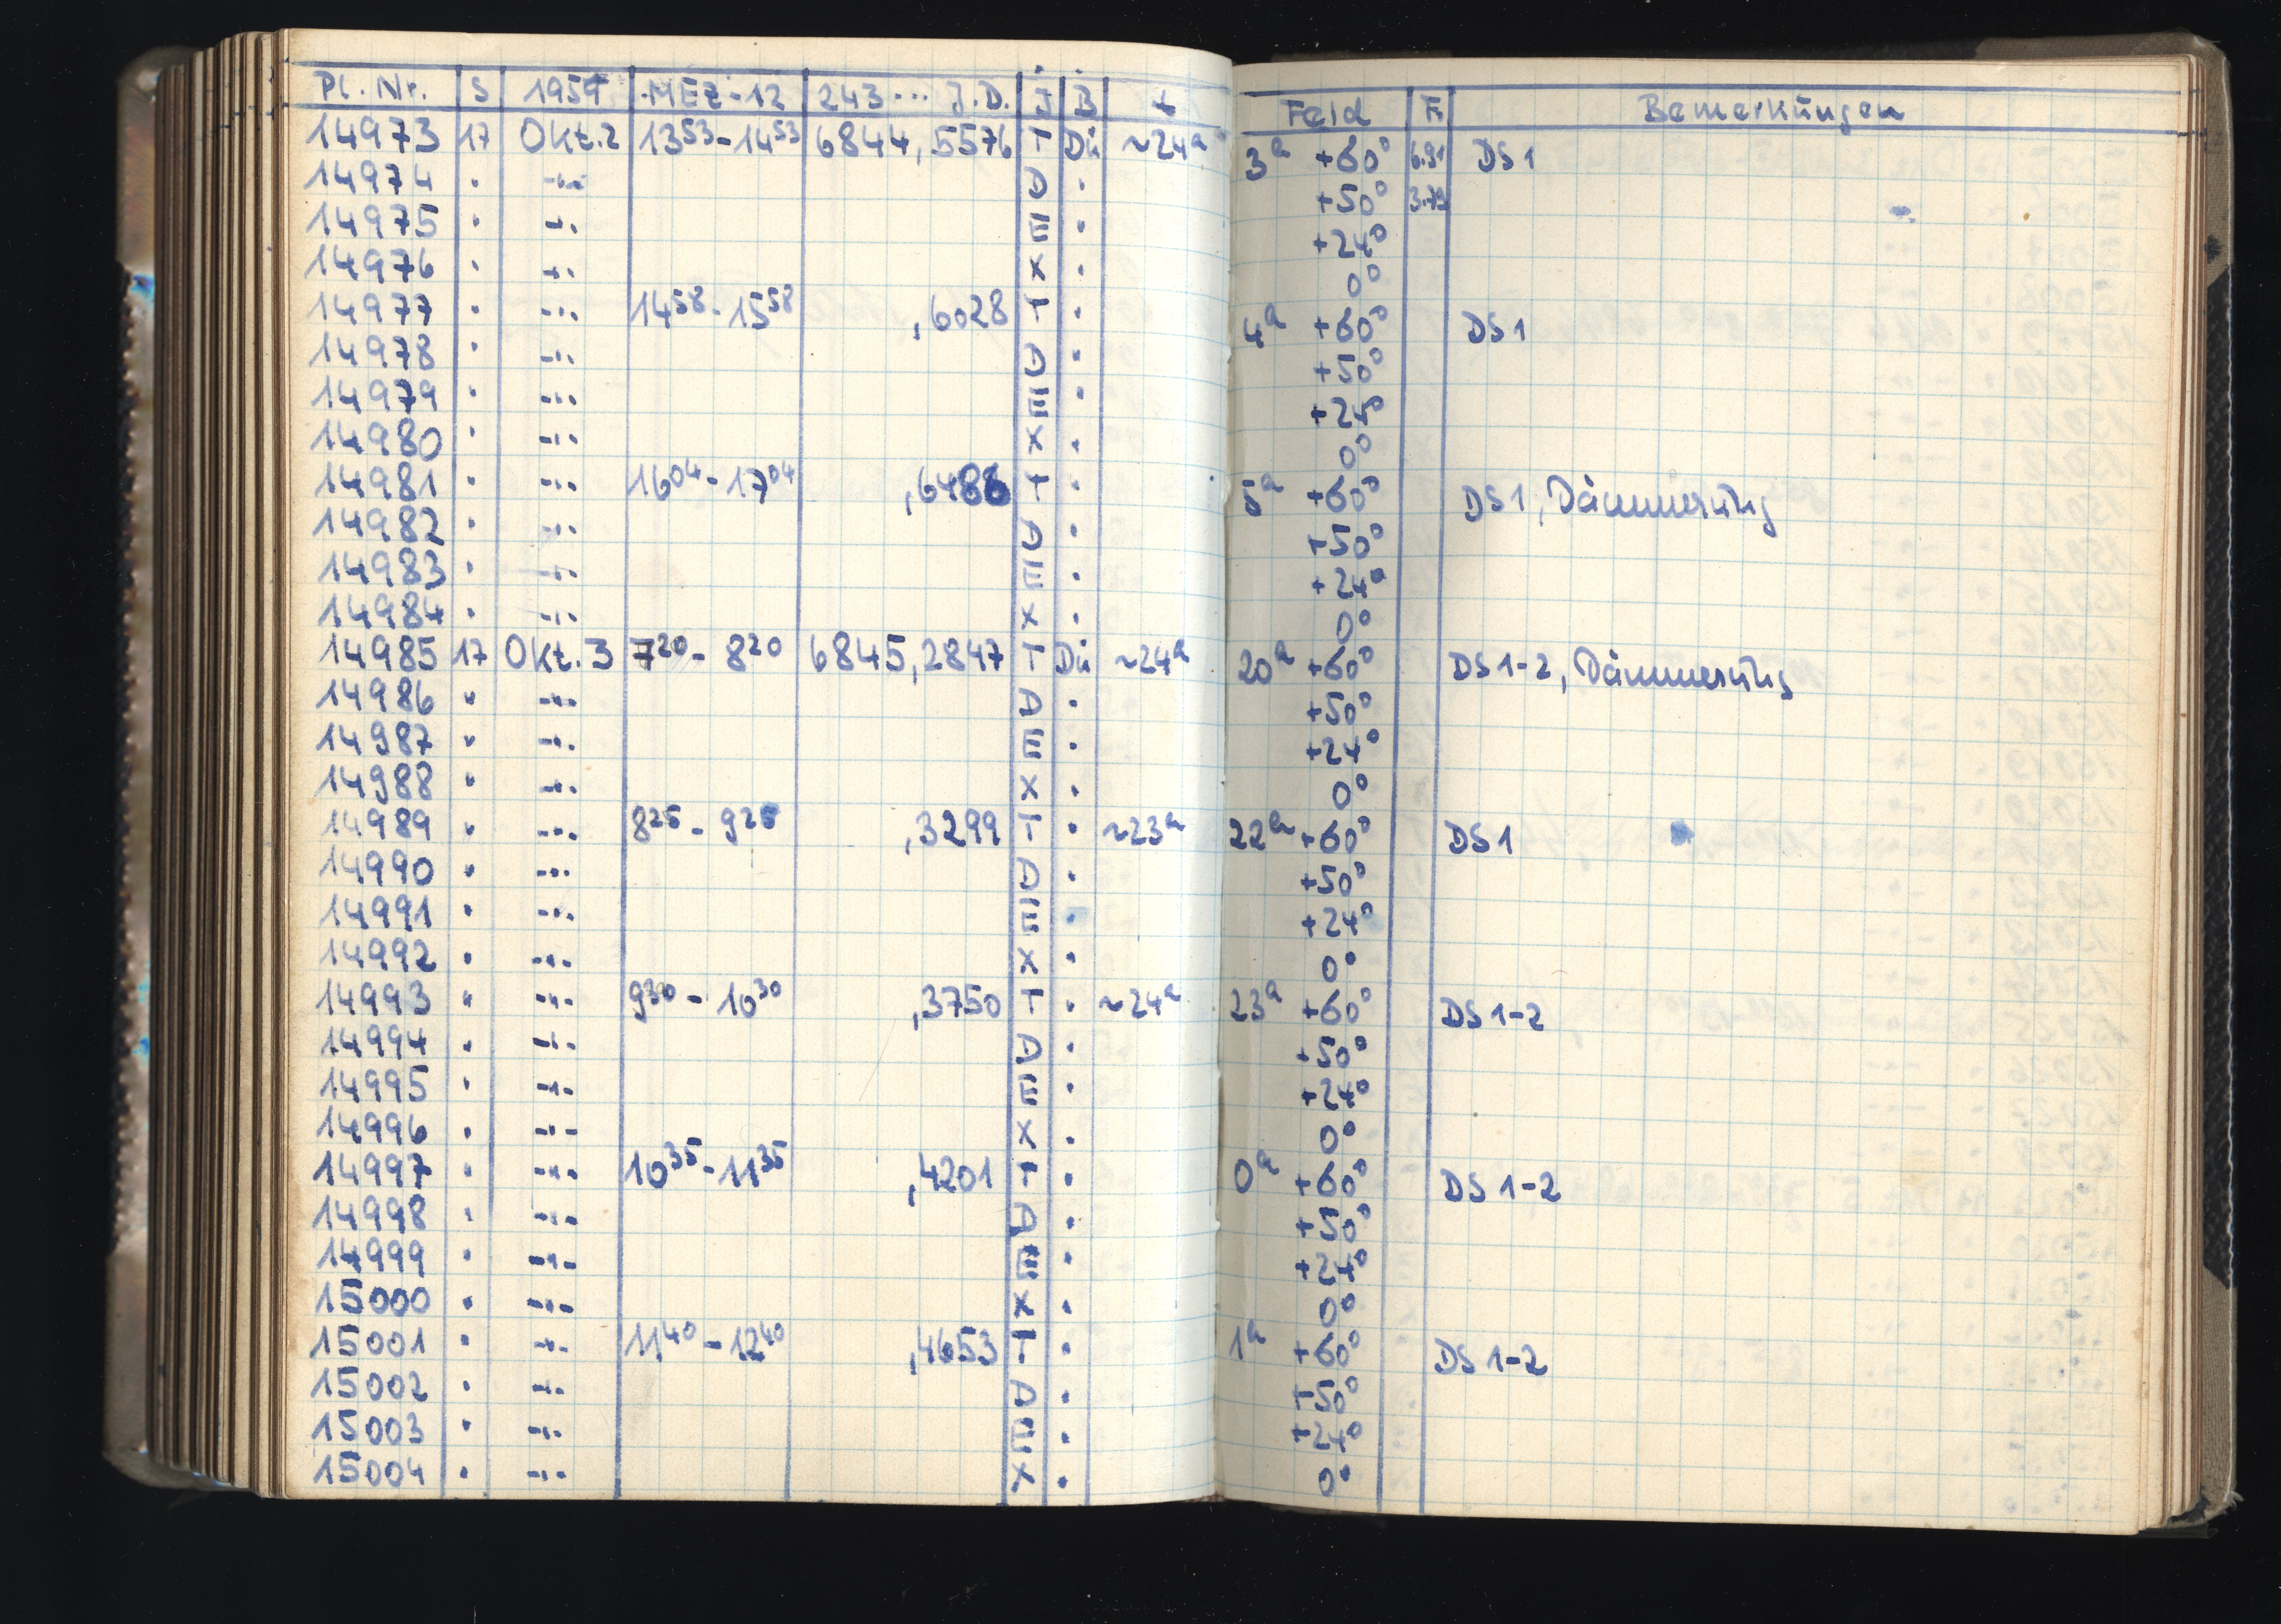 Pl. Nr. S 1959 MEZ-12 243... J.D. J B t Feld F. Bemerkungen
14973 17 Okt.2 13⁵³-14⁵³ 6844,5576 T Dü ~24ᵃ 3ᵃ +60° 6.91 DS1
14974 · -··- D · +50° 3.73
14975 · -·· E · +24°
14976 · -·· X · 0°
14977 · -··· 14⁵⁸-15⁵⁸ ,6028 T · 4ᵃ +60° DS1
14978 · -··· D · +50°
14979 · -··· E · +24°
14980 · -··· X · 0°
14981 · -··· 16⁰⁴-17⁰⁴ ,6486 T · 5ᵃ +60° DS1, Dämmerung
14982 · -··· D · +50°
14983 · -··· E · +24°
14984 · -··· X · 0°
14985 17 Okt.3 7²⁰-8²⁰ 6845,2847 T Dü ~24ᵃ 20ᵃ +60° DS1-2, Dämmerung
14986 " -··· D · +50°
14987 " -··· E · +24°
14988 " -··· X · 0°
14989 " -··· 8²⁵-9²⁵ ,3299 T · ~23ᵃ 22ᵃ +60° DS1
14990 " -··· D · +50°
14991 · -··· E · +24°
14992 · -··· X · 0°
14993 " -··· 9³⁰-10³⁰ ,3750 T · ~24ᵃ 23ᵃ +60° DS1-2
14994 · -··· D · +50°
14995 · -··· E · +24°
14996 · -··- X · 0°
14997 · -··· 10³⁵-11³⁵ ,4201 T · 0ᵃ +60° DS1-2
14998 · -··· D · +50°
14999 · -··- E · +24°
15000 · -··· X · 0°
15001 · -·· 11⁴⁰-12⁴⁰ ,4653 T · 1ᵃ +60° DS1-2
15002 · -·· D · +50°
15003 · -··· E · +24°
15004 · -··· X · 0°